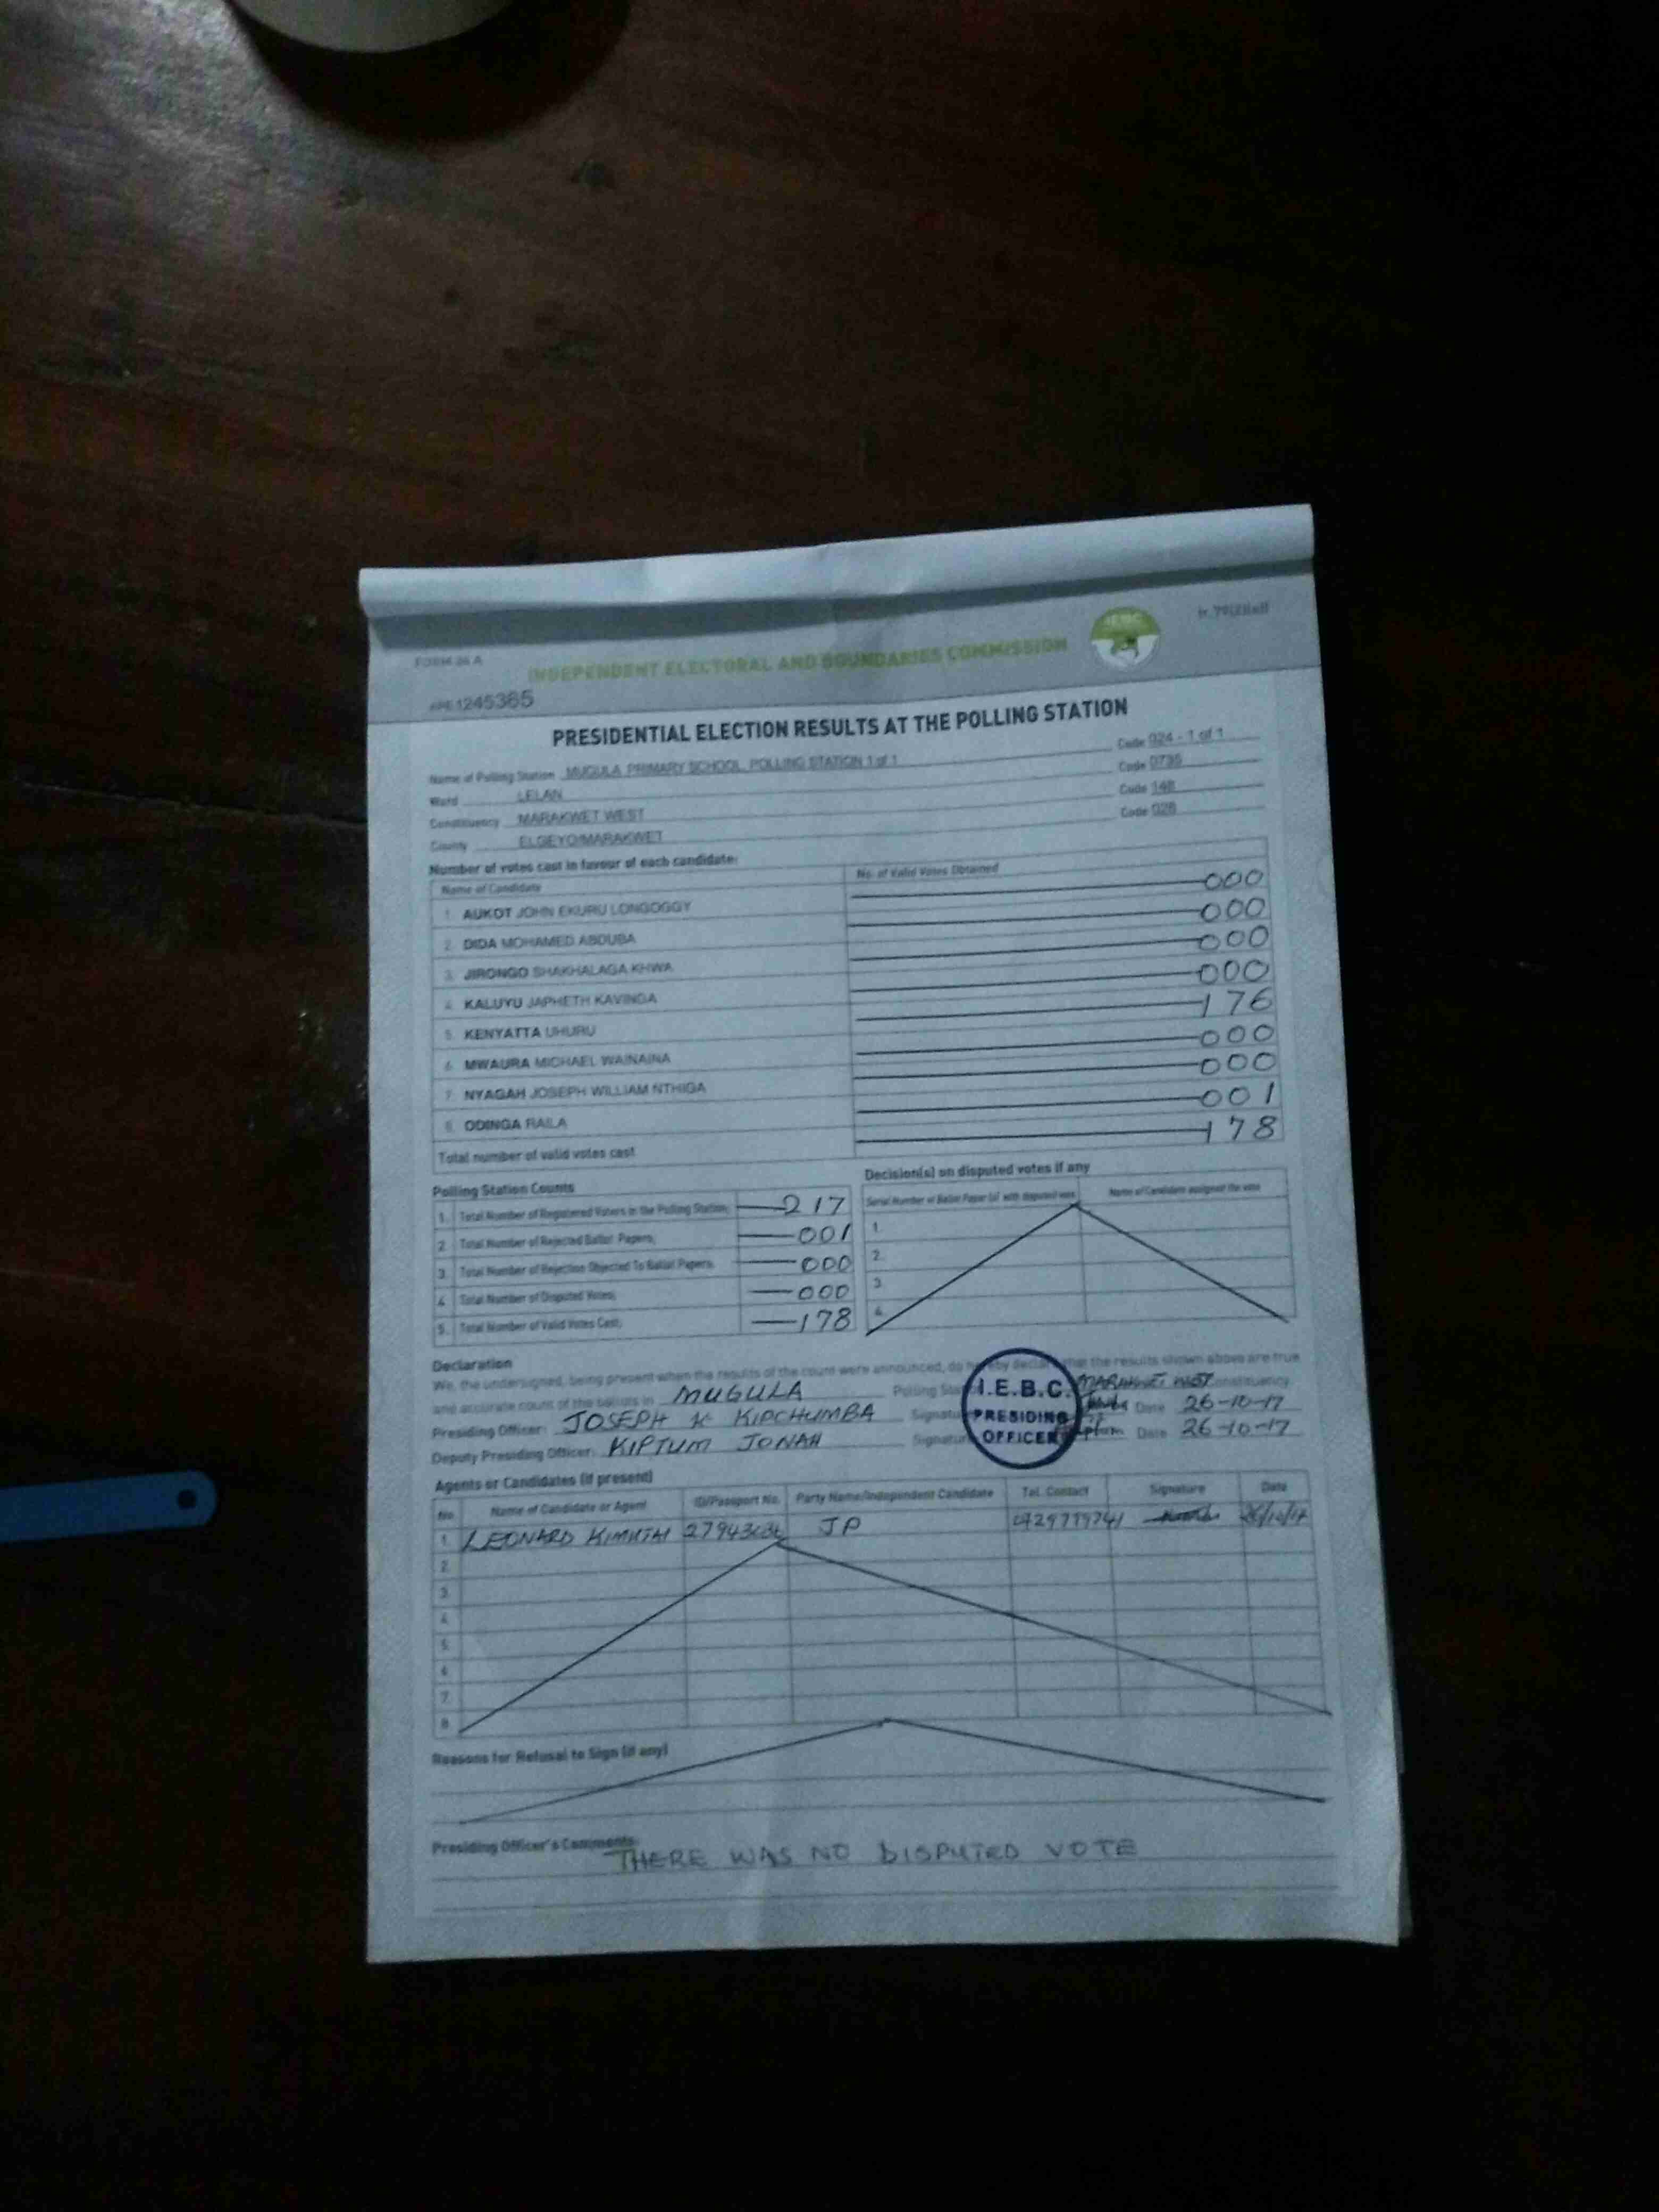 FORM 34 A
INDEPENDENT ELECTORAL AND BOUNDARIES COMMISSION
1245365
PRESIDENTIAL ELECTION RESULTS AT THE POLLING STATION
Name of Polling Station MUGULA PRIMARY SCHOOL POLLING STATION 1 of 1 Code 024 - 1 of 1
Ward LELAN Code 0735
Constituency MARAKWET WEST Code 148
County ELGEYO/MARAKWET Code 028
Number of votes cast in favour of each candidate:
Name of Candidate No. of Valid Votes Obtained
1. AUKOT JOHN EKURU LONGOGGY 000
2. DIDA MOHAMED ABDUBA 000
3. JIRONGO SHAKHALAGA KHWA 000
4. KALUYU JAPHETH KAVINGA 000
5. KENYATTA UHURU 176
6. MWAURA MICHAEL WAINAINA 000
7. NYAGAH JOSEPH WILLIAM NTHIGA 000
8. ODINGA RAILA 001
Total number of valid votes cast 178
Polling Station Counts
1. Total Number of Registered Voters in the Polling Station; 217
2. Total Number of Rejected Ballot Papers; 001
3. Total Number of Rejection Objected To Ballot Papers; 000
4. Total Number of Disputed Votes; 000
5. Total Number of Valid Votes Cast; 178
Decision(s) on disputed votes if any
Serial Number of Ballot Paper (s) with disputed vote Name of Candidate assigned the vote
1.
2.
3.
4.
Declaration
We, the undersigned, being present when the results of the count were announced, do hereby declare that the results shown above are true
and accurate count of the ballots in MUGULA Polling Station MARAKWET WEST Constituency
Presiding Officer: JOSEPH K KIPCHUMBA Signature Date 26-10-17
Deputy Presiding Officer: KIPTUM JONAH Signature Date 26-10-17
I.E.B.C.
PRESIDING
OFFICER
Agents or Candidates (if present)
No. Name of Candidate or Agent ID/Passport No. Party Name/Independent Candidate Tel. Contact Signature Date
1. LEONARD KIMUTAI JP 26/10/17
2.
3.
4.
5.
6.
7.
8.
Reasons for Refusal to Sign (if any)
Presiding Officer's Comments:
THERE WAS NO DISPUTED VOTE